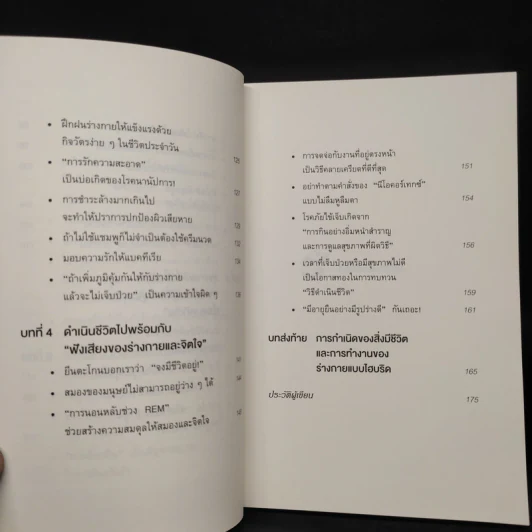 • ฝึกฝนร่างกายให้แข็งแรงด้วย
กิจวัตรง่าย ๆ ในชีวิตประจำวัน
• “การรักความสะอาด”
เป็นบ่อเกิดของโรคนานัปการ!
• การชำระล้างมากเกินไป
จะทำให้ปราการปกป้องผิวเสียหาย
• ถ้าไม่ใช้แชมพูก็ไม่จำเป็นต้องใช้ครีมนวด
• มอบความรักให้แบคทีเรีย
• “ถ้าเพิ่มภูมิคุ้มกันให้กับร่างกาย
แล้วจะไม่เจ็บป่วย” เป็นความเข้าใจผิด ๆ
บทที่ 4 ดำเนินชีวิตไปพร้อมกับ
“ฟังเสียงของร่างกายและจิตใจ”
• ยีนตะโกนบอกเราว่า “จงมีชีวิตอยู่!”
• สมองของมนุษย์ไม่สามารถอยู่ว่าง ๆ ได้
• “การนอนหลับช่วง REM”
ช่วยสร้างความสมดุลให้สมองและจิตใจ
• การจดจ่อกับงานที่อยู่ตรงหน้า
เป็นวิธีคลายเครียดที่ดีที่สุด 151
• อย่าทำตามคำสั่งของ “นีโอคอร์เทกซ์”
แบบไม่ลืมหูลืมตา 154
• โรคภัยไข้เจ็บเกิดจาก
“การกินอย่างอิ่มหนำสำราญ
และการดูแลสุขภาพที่ผิดวิธี” 156
• เวลาที่เจ็บป่วยหรือมีสุขภาพไม่ดี
เป็นโอกาสทองในการทบทวน
“วิธีดำเนินชีวิต” 159
• “มีอายุยืนอย่างมีรูปร่างดี” กันเถอะ! 161
บทส่งท้าย การกำเนิดของสิ่งมีชีวิต
และการทำงานของ
ร่างกายแบบไฮบริด 165
ประวัติผู้เขียน 175